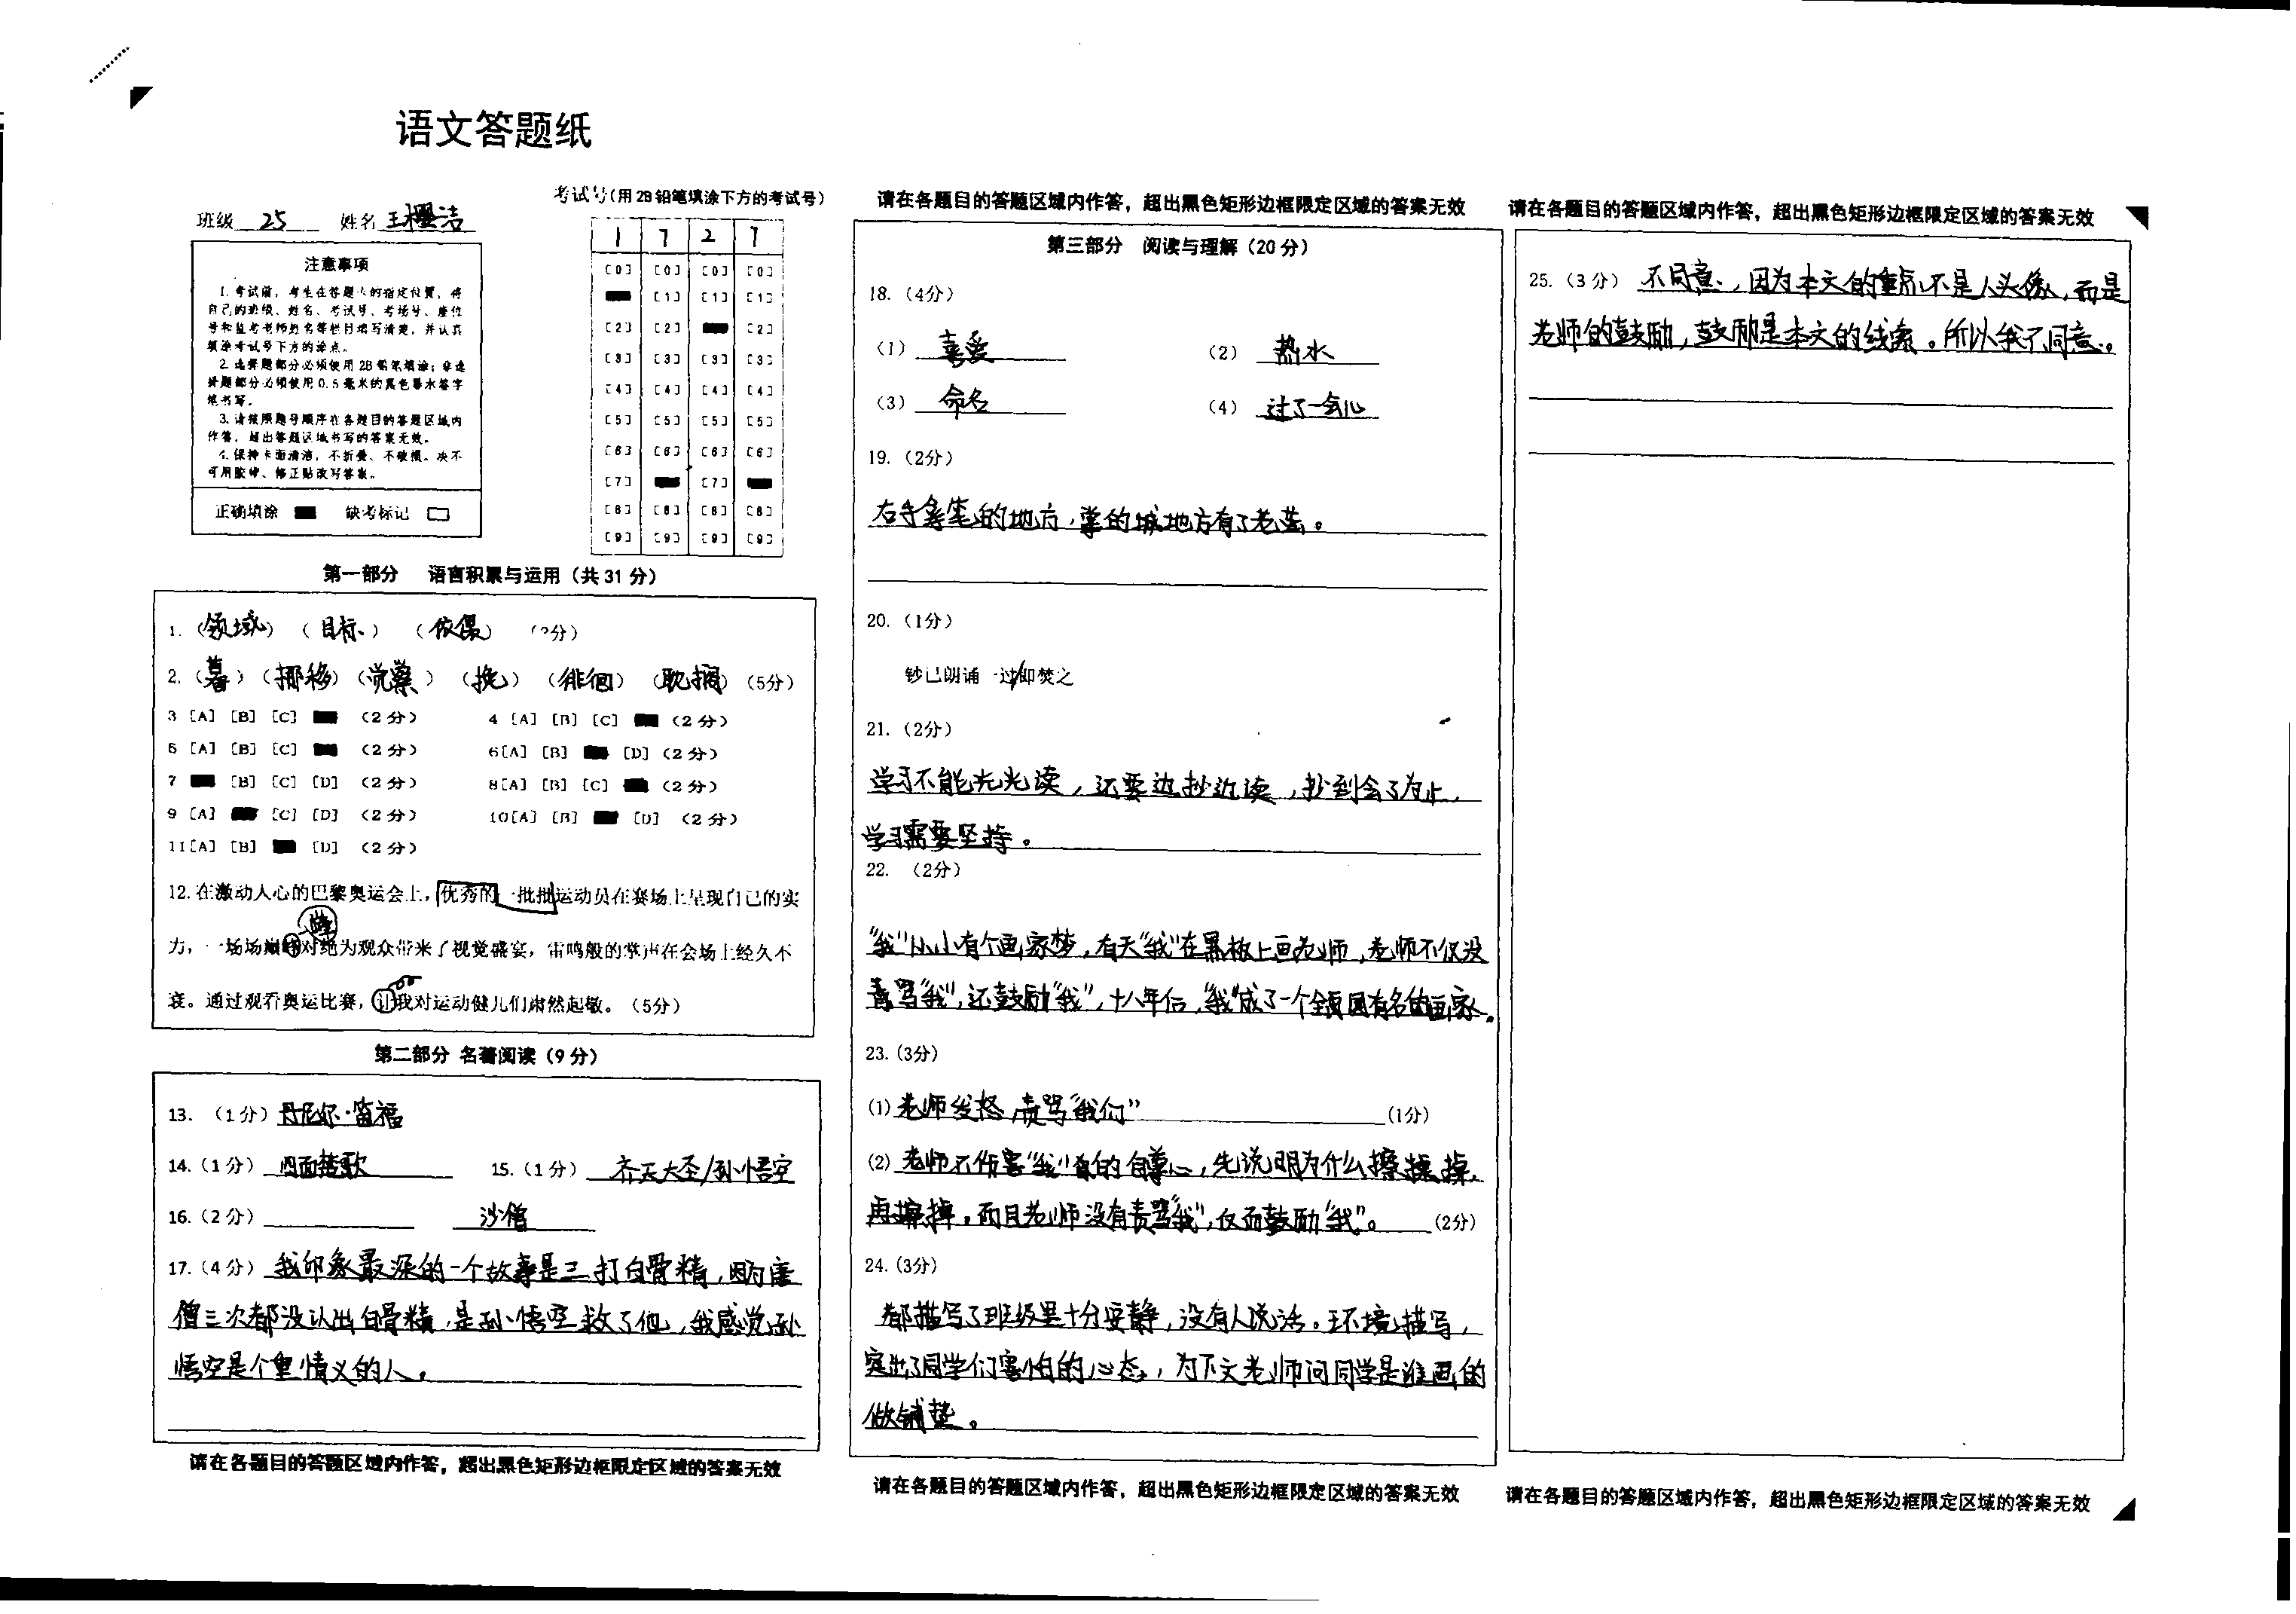 语文答题纸
班级 25 姓名 王樱洁
考试号(用 2B 铅笔填涂下方的考试号)
1 7 2 7
[0] [0] [0] [0]
[1] [1] [1]
[2] [2] [2]
[3] [3] [3] [3]
[4] [4] [4] [4]
[5] [5] [5] [5]
[6] [6] [6] [6]
[7] [7]
[8] [8] [8] [8]
[9] [9] [9] [9]
注意事项
1. 考试前，考生在答题卡的指定位置，将
自己的班级、姓名、考试号、考场号、座位
号和监考老师姓名等栏目填写清楚，并认真
填涂考试号下方的涂点。
2. 选择题部分必须使用 2B 铅笔填涂；非选
择题部分必须使用 0.5 毫米的黑色墨水签字
笔书写。
3. 请按照题号顺序在各题目的答题区域内
作答，超出答题区域书写的答案无效。
4. 保持卡面清洁，不折叠、不破损。决不
可用胶带、修正贴改写答案。
正确填涂 缺考标记
第一部分 语言积累与运用（共 31 分）
1.（领域）（目标）（依偎）
2.（暮）（挪移）（觉察）（挽）（徘徊）（耽搁）（5分）
3 [A] [B] [C] （2 分） 4 [A] [B] [C] （2 分）
5 [A] [B] [C] （2 分） 6[A] [B] [D]（2 分）
7 [B] [C] [D] （2 分） 8[A] [B] [C] （2 分）
9 [A] [C] [D] （2 分） 10[A] [B] [D] （2 分）
11[A] [B] [D] （2 分）
12. 在激动人心的巴黎奥运会上，优秀的一批批运动员在赛场上呈现自己的实
力，一场场巅峰对绝为观众带来了视觉盛宴，雷鸣般的掌声在会场上经久不
衰。通过观看奥运比赛，让我对运动健儿们肃然起敬。（5分）
第二部分 名著阅读（9 分）
13.（1 分）丹尼尔·笛福
14.（1 分）四面楚歌 15.（1 分）齐天大圣/孙悟空
16.（2 分） 沙僧
17.（4 分）我印象最深的一个故事是三打白骨精，因为唐
僧三次都没认出白骨精，是孙悟空救了他，我感觉孙
悟空是个重情义的人。
请在各题目的答题区域内作答，超出黑色矩形边框限定区域的答案无效
请在各题目的答题区域内作答，超出黑色矩形边框限定区域的答案无效
第三部分 阅读与理解（20 分）
18.（4分）
（1）喜爱 （2）热水
（3）命名 （4）过了一会儿
19.（2分）
右手拿笔的地方，掌的地方有了老茧。
20.（1分）
钞已朗诵一过/即焚之
21.（2分）
学习不能光光读，还要边抄边读，抄到会了为止，
学习需要坚持。
22.（2分）
“我”从小有个画家梦，有天“我”在黑板上画老师，老师不仅没
责骂“我”，还鼓励“我”，十八年后，“我”成了一个全国有名的画家。
23.（3分）
(1) 老师发怒，责骂“我们” (1分)
(2) 老师不伤害“我”的自尊心，先说明为什么擦掉，
再擦掉，而且老师没有责骂“我”，反而鼓励“我”。 (2分)
24.（3分）
都描写了班级里十分安静，没有人说话。环境描写，
突出了同学们害怕的心态，为下文老师问同学是谁画的
做铺垫。
请在各题目的答题区域内作答，超出黑色矩形边框限定区域的答案无效
请在各题目的答题区域内作答，超出黑色矩形边框限定区域的答案无效
25.（3 分）不同意，因为本文的重点不是人头像，而是
老师的鼓励，鼓励是本文的线索。所以我不同意。
请在各题目的答题区域内作答，超出黑色矩形边框限定区域的答案无效